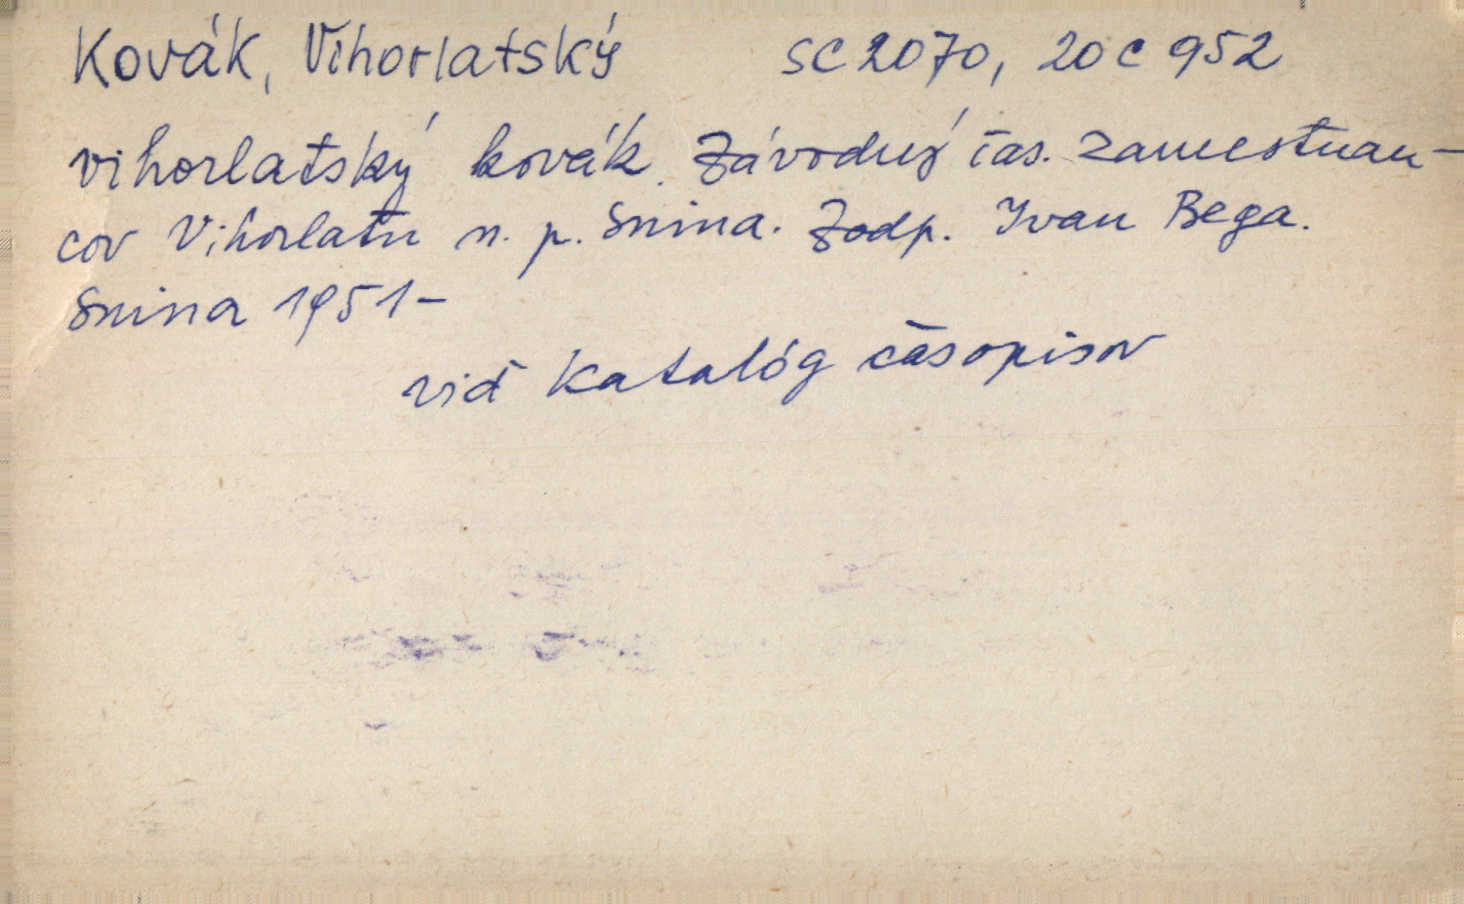 Kovák, Vihorlatský SC 2070, 20 C 952
Vihorlatský kovák. Závodný čas. zamestnan-
cov Vihorlatu n. p. Snina. Zodp. Ivan Bega.
Snina 1951-
viď Katalóg časopisov